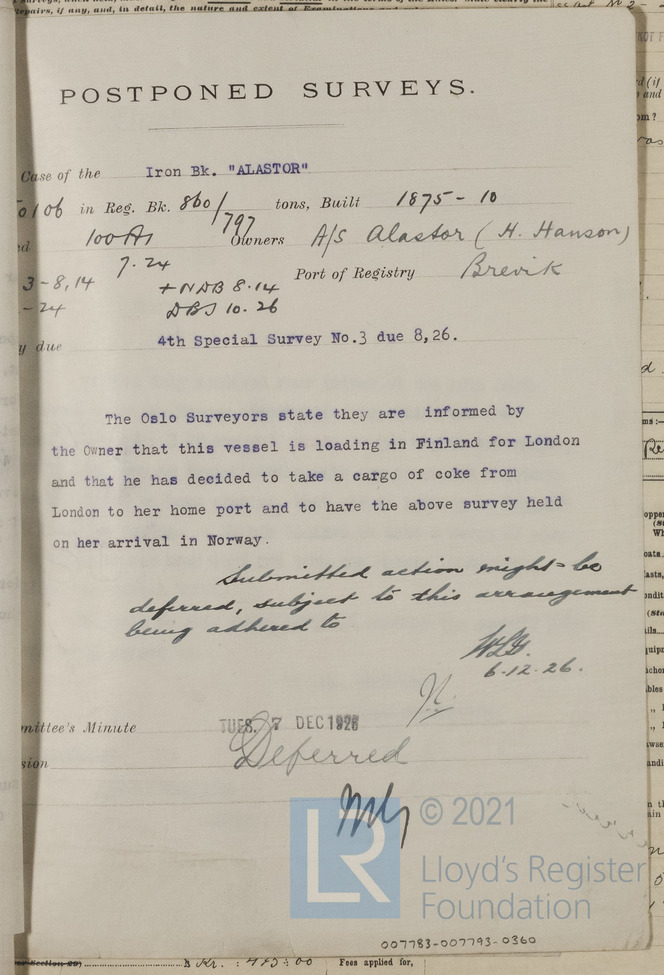 Repairs, if any, and, in detail, the nature and extent of
POSTPONED SURVEYS.
Case of the Iron Bk. "ALASTOR"
in Reg. Bk. 860/797 tons, Built 1875-10
100A1 Owners A/S Alastor (H. Hanson)
7.24 Port of Registry Brevik
3-8,14 +NDB 8.14
-24 DBS 10.26
y due 4th Special Survey No.3 due 8,26.
The Oslo Surveyors state they are informed by
the Owner that this vessel is loading in Finland for London
and that he has decided to take a cargo of coke from
London to her home port and to have the above survey held
on her arrival in Norway.
Submitted action might be
deferred, subject to this arrangement
being adhered to
6.12.26.
mittee's Minute TUES. 7 DEC 1926
sion Deferred
© 2021
LR
Lloyd's Register
Foundation
007783-007793-0360
Fees applied for,